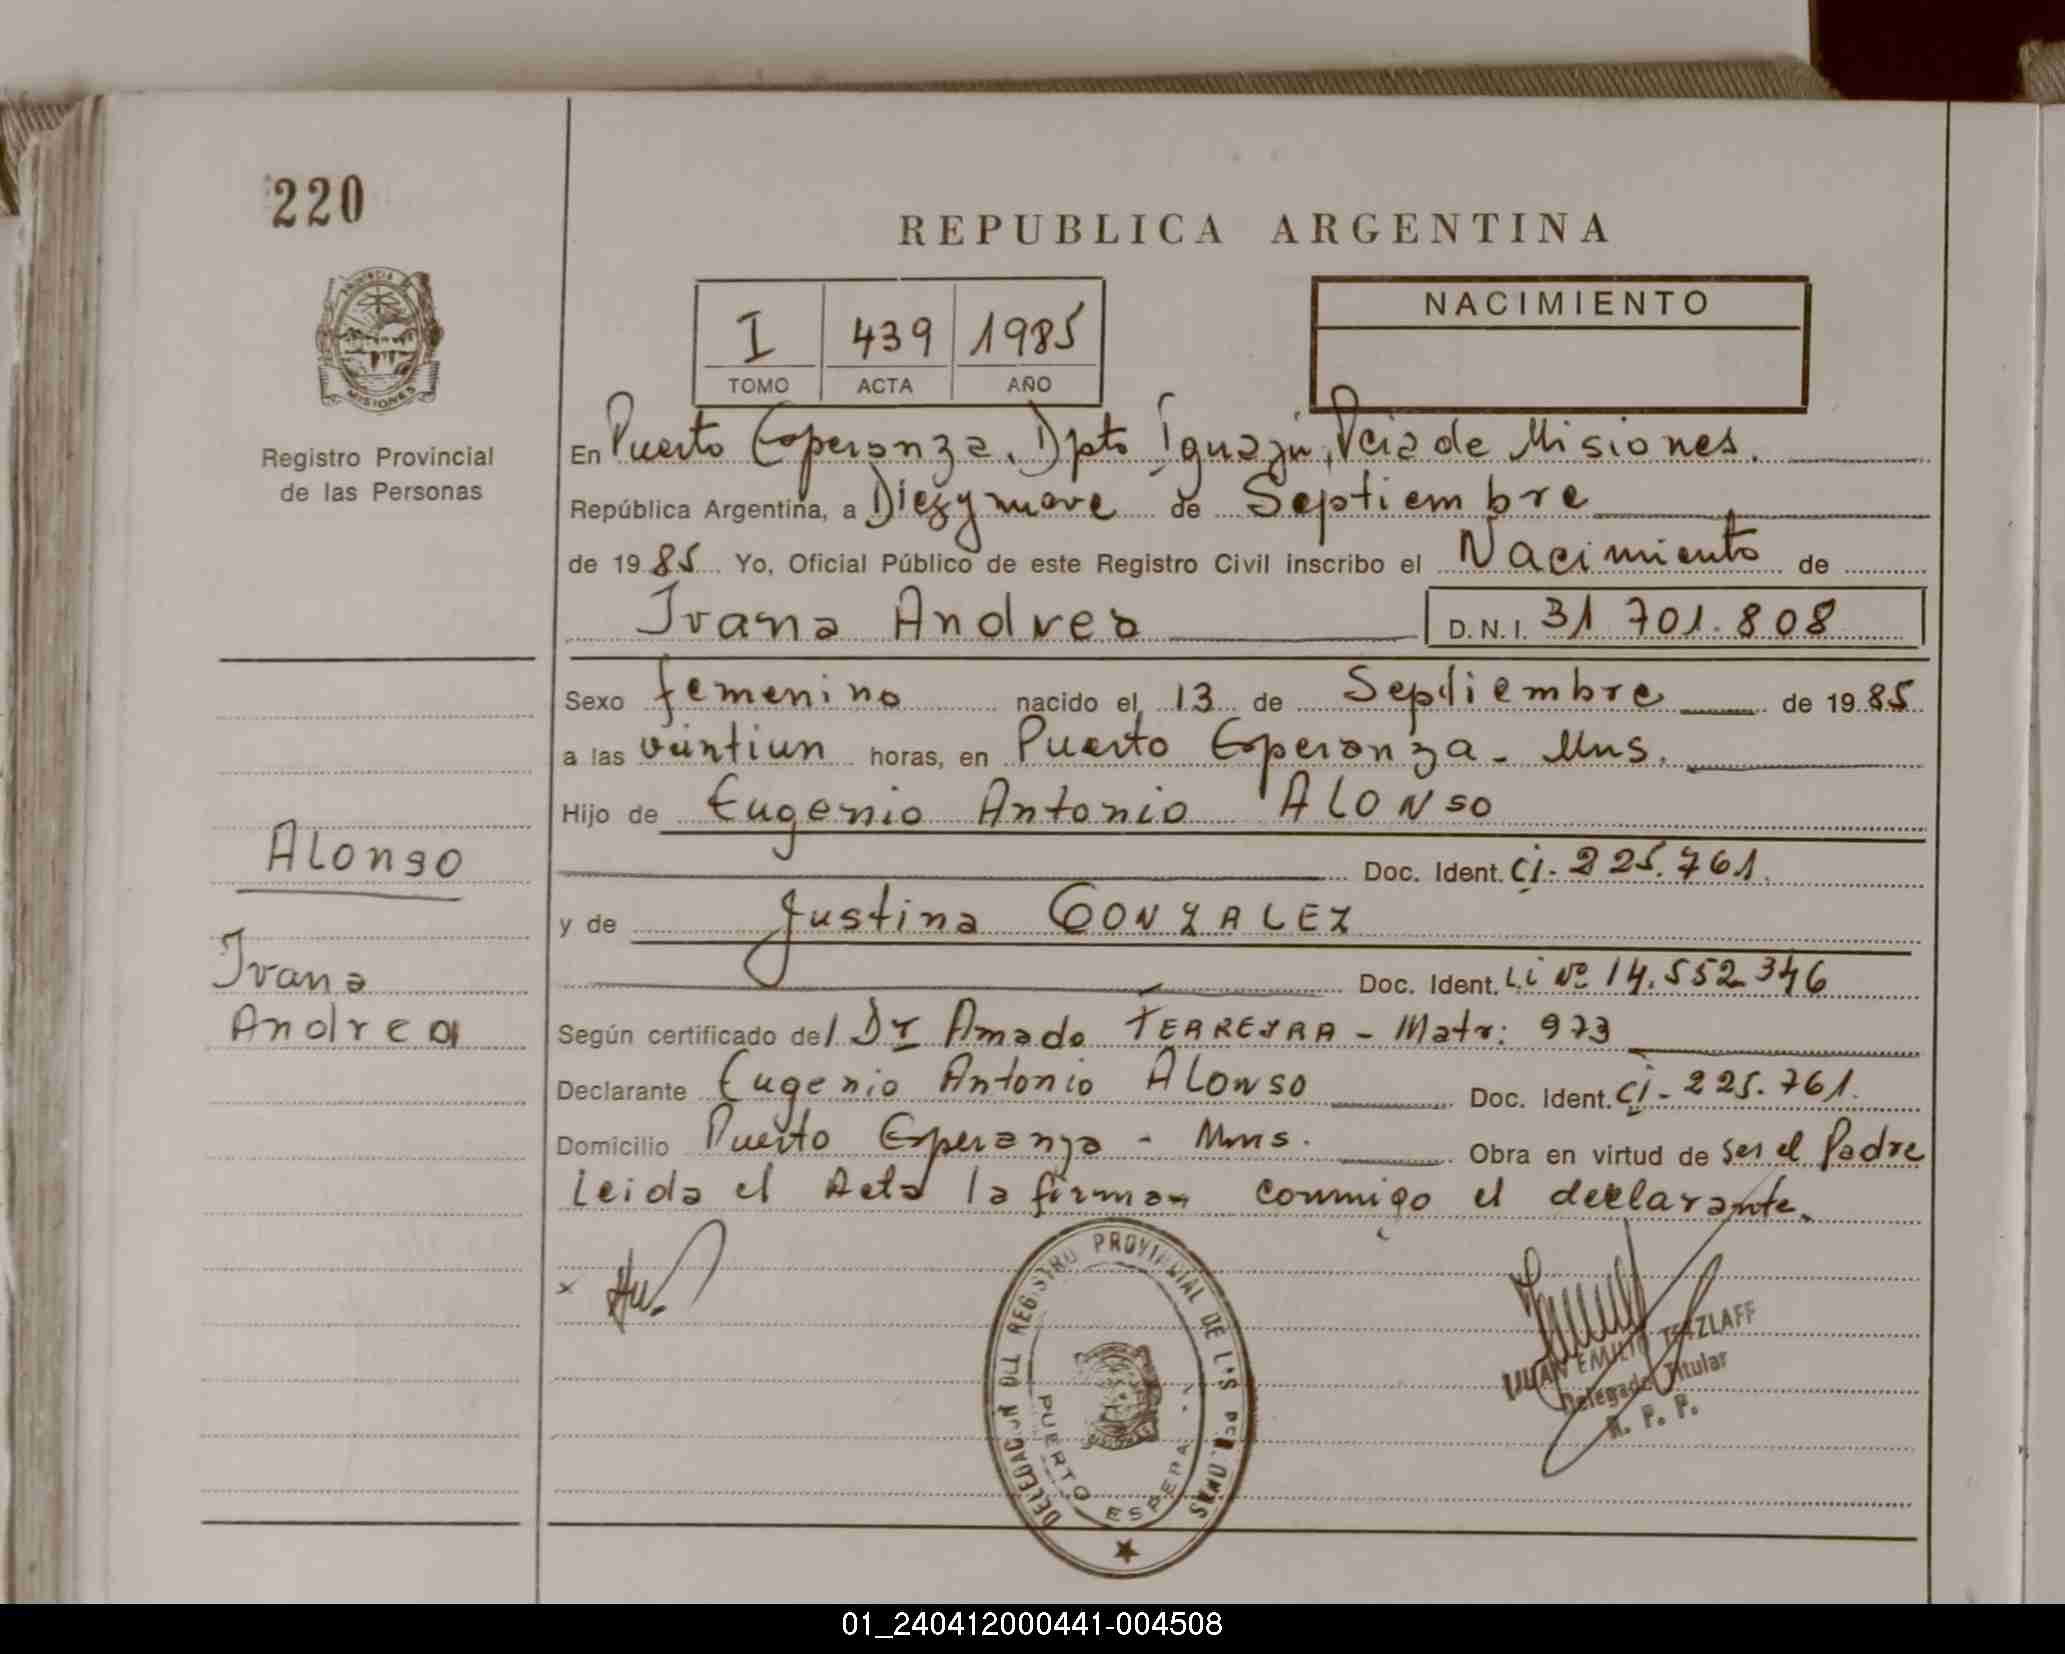 220
REPUBLICA ARGENTINA
PROVINCIA DE
MISIONES
Registro Provincial
de las Personas
I 439 1985
TOMO ACTA AÑO
NACIMIENTO
En Puerto Esperanza, Dpto Iguazú, Pcia de Misiones.
República Argentina, a Diezynueve de Septiembre
de 1985 Yo, Oficial Público de este Registro Civil inscribo el Nacimiento de
Ivana Andrea D.N.I. 31.701.808
Sexo femenino nacido el 13 de Septiembre de 1985
a las veintiun horas, en Puerto Esperanza - Mns.
Hijo de Eugenio Antonio ALONSO
Doc. Ident. Ci- 225.761.
y de Justina GONZALEZ
Doc. Ident. L.C Nº 14.552.346
Según certificado del Dr Amado FERREYRA - Matr: 973
Declarante Eugenio Antonio ALONSO Doc. Ident. Ci- 225.761.
Domicilio Puerto Esperanza - Mnes. Obra en virtud de ser el Padre
Leida el Acta la firman conmigo el declarante.
Alonso
Ivana
Andrea
x
DELEGACION DEL REGISTRO PROVINCIAL DE LAS PERSONAS
PUERTO ESPERA
JUAN EMILIO TETZLAFF
Delegado Titular
R. P. P.
01_240412000441-004508